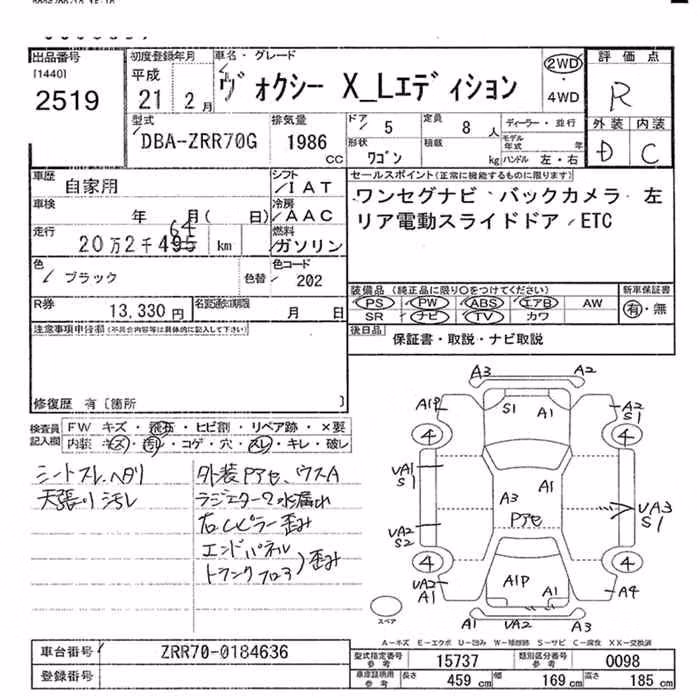 出品番号
[1440]
2519
初度登録年月
平成
21 2月
車名・グレード
ヴォクシー X_Lエディション
2WD
4WD
評価点
R
外装 内装
D C
型式
DBA-ZRR70G
排気量
1986
CC
ドア
5
定員
8 人
形状
ワゴン
積載
kg
ディーラー・並行
モデル年式 年
ハンドル 左・右
車歴
自家用
シフト
IAT
車検
年 月( 日)
冷房
AAC
走行
20万2千495 km
64
燃料
ガソリン
色
ブラック
色替
色コード
202
R券
13,330 円
名義変更期限
月 日
セールスポイント(正常に機能するものに限ります)
ワンセグナビ、バックカメラ、左
リア電動スライドドア、ETC
装備品 (純正品に限り○をつけてください)
PS PW ABS エアB AW
SR ナビ TV カワ
新車保証書
有・無
後日品
保証書・取説・ナビ取説
注意事項申告欄(不具合内容等は具体的に記入して下さい)
修復歴 有〔箇所 〕
検査員記入欄
FW キズ・飛石・ヒビ割・リペア跡・×要
内装 キズ・汚れ・コゲ・穴・スレ・キレ・破レ
シートスレ、ヘタリ
天張り汚レ
外装Pアセ、ウスA
ラジエターワ水漏れ
右Cピラー歪み
エンドパネル
トランクフロア)歪み
A3 A2
A1P S1 A1 A2
S1
4 4
UA1
S1
A3 A1
Pアセ
UA3
S1
UA2
S2
4 4
UA2
A1
A1P A1
A4
A1 UA2 A3
スペア
A-キズ E-エクボ U-凹み W-補修跡 S-サビ C-腐食 XX-交換済
車台番号
ZRR70-0184636
登録番号
型式指定番号
参考
15737
類別区分番号
参考
0098
車庫証明用
参考
長さ 459 cm
幅 169 cm
高さ 185 cm